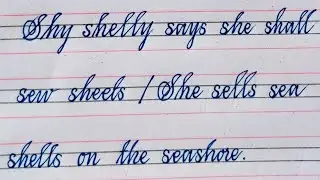 Shy shelly says she shall
sew sheets / She sells sea
shells on the seashore.